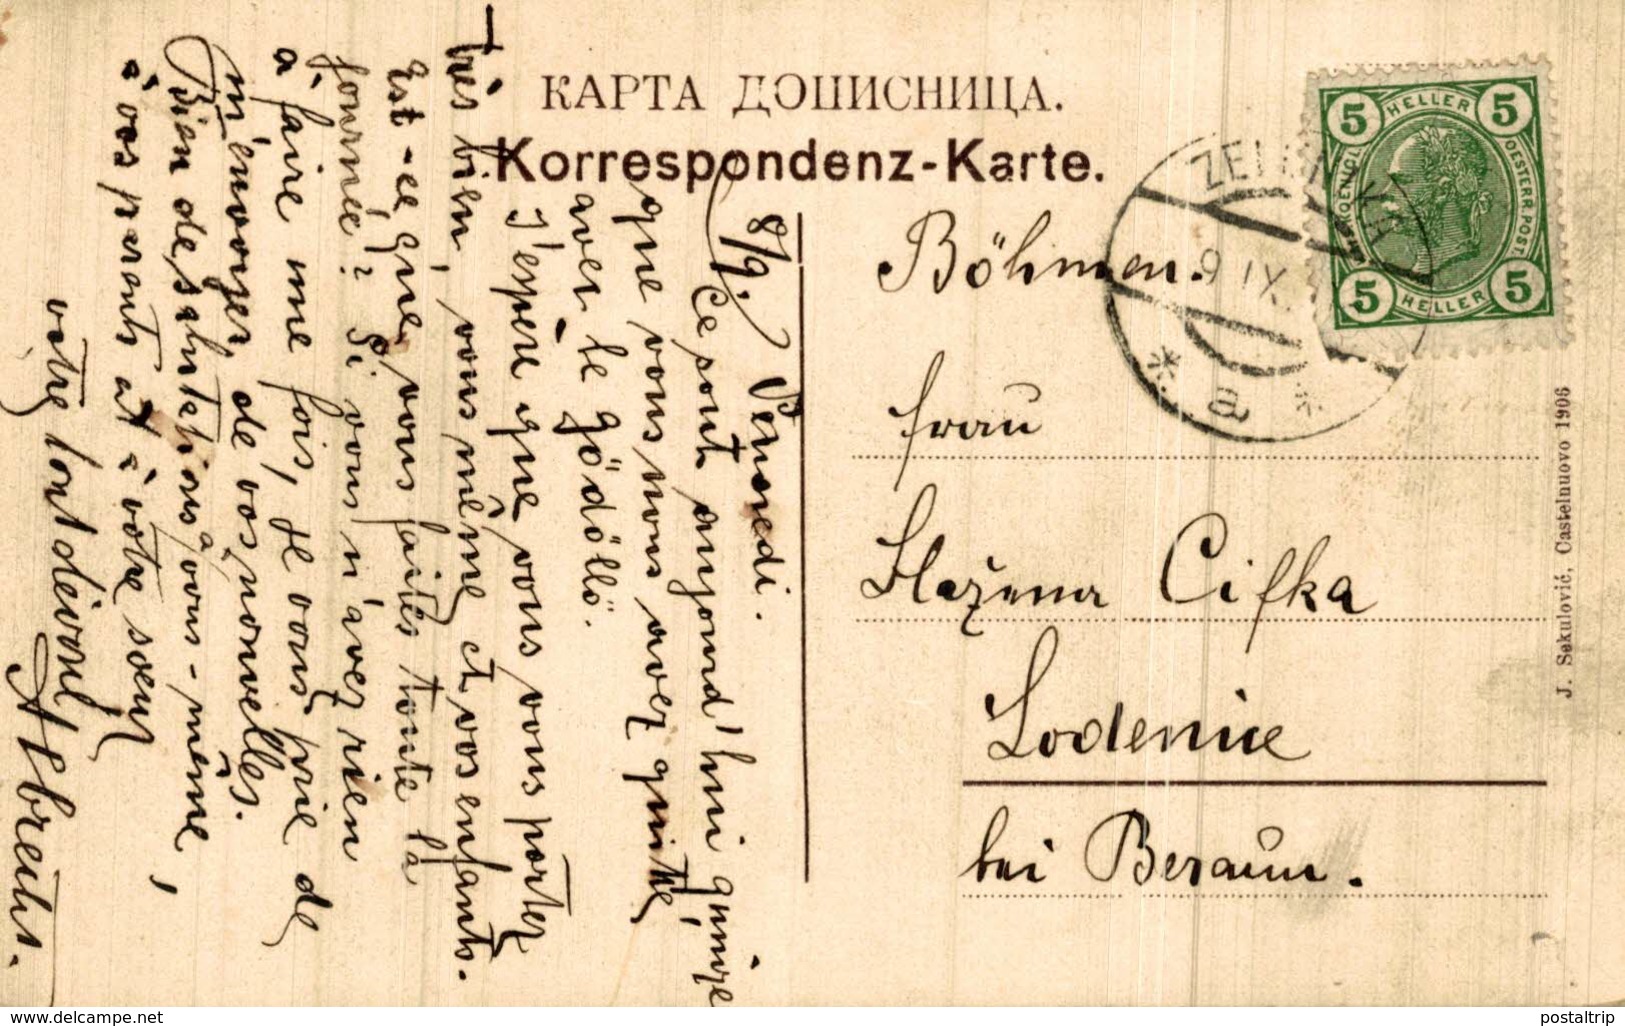 КАРТА ДОПИСНИЦА.
Korrespondenz-Karte.
5 HELLER 5
OESTERR. POST
5 HELLER 5
9 IX
* a *
Böhmen.
Frau
Cifka
Lodenice
bei Beraun.
J. Sekulović, Castelnuovo 1906
8/9. 
Ce sont aujourd'hui quinze
que vous nous avez quitté
avec le gödöllö.
J'espère que vous vous portez
très bien, vous même et vos enfants.
Est-ce que vous faites toute la
journée? Si vous n'avez rien
à faire une fois, je vous prie de
m'envoyer de vos nouvelles.
Bien de salutations à vous-même,
à vos parents et à votre soeur
votre tout dévoué
www.delcampe.net
postaltrip